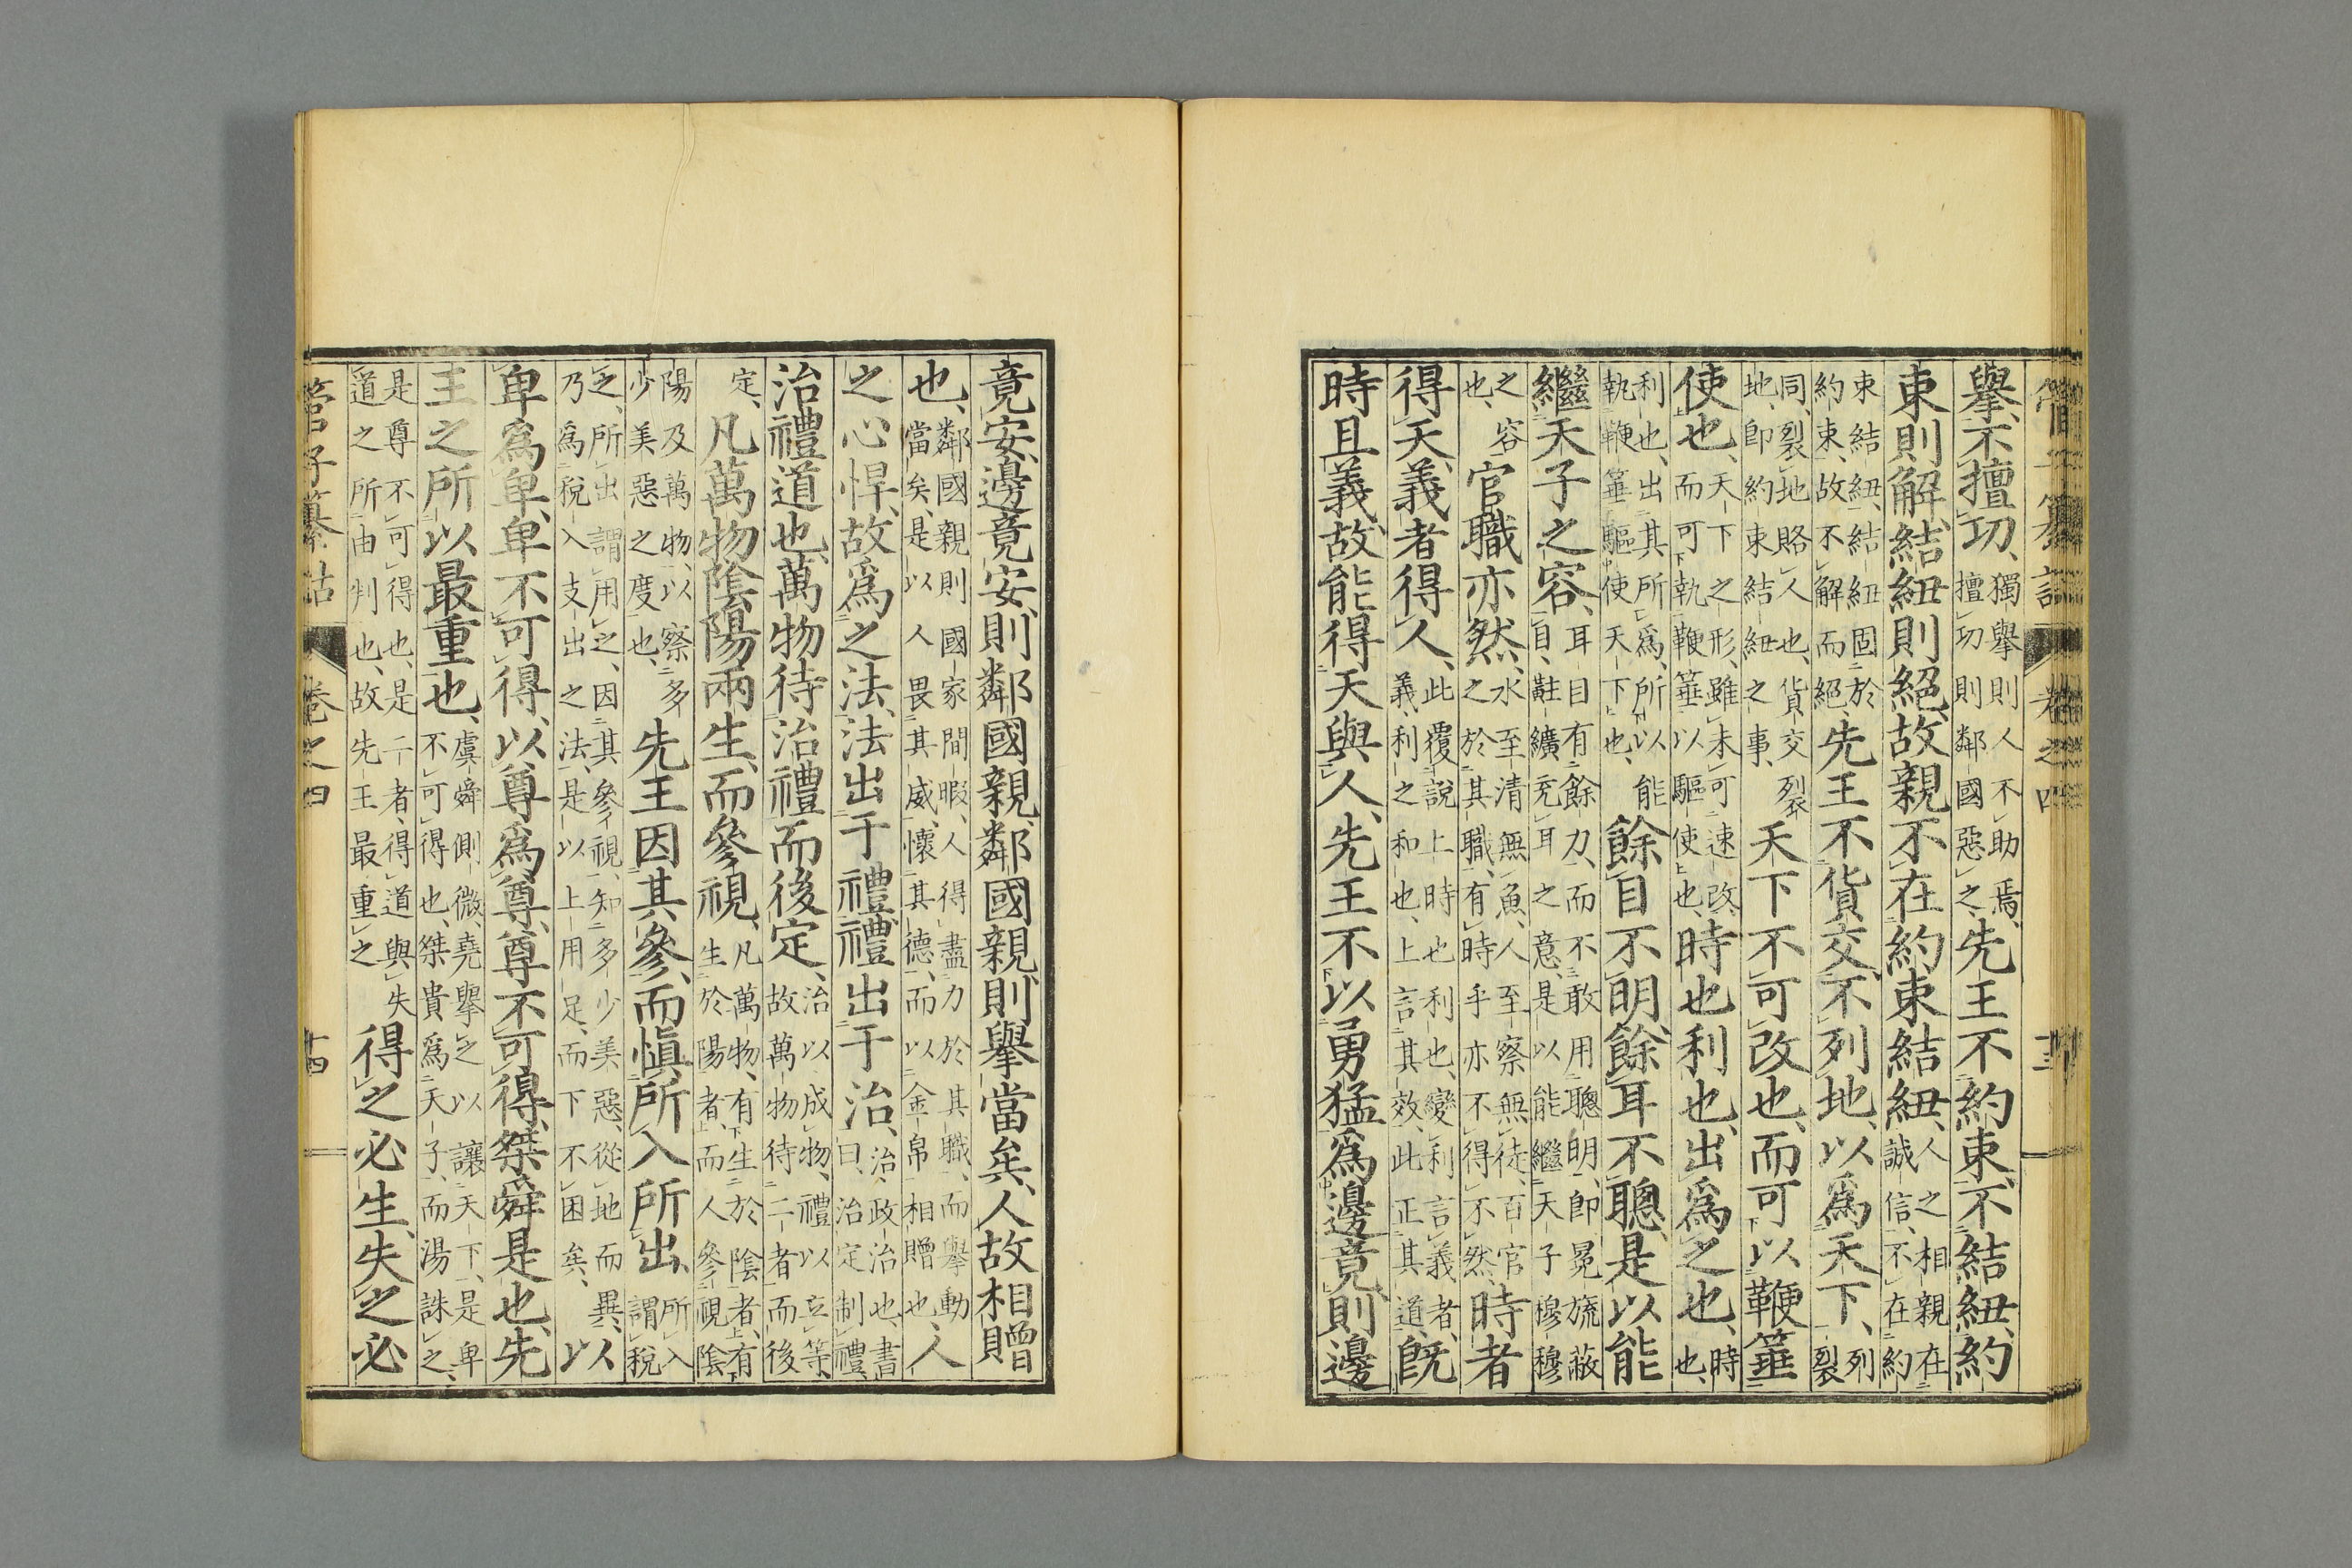 擧、不擅功、獨擧則人不助焉、擅功則鄰國惡之、先王不約束、不結紐、約
束則解、結紐則絕、故親不在約束結紐、人之相親在誠信、不在約
束結紐、結紐固於約束、故不解而絕、先王不貨交、不列地、以爲天下、列裂
同、裂地賂人也、貨交裂地、卽約束結紐之事、天下不可改也、而可以鞭箠
使也、天下之形、雖未可速改、而可執鞭箠以驅使也、時也利也、出爲之也、時也、
利也、出其所爲、所以能執鞭箠驅使天下也、餘目不明、餘耳不聰、是以能
繼天子之容、耳目有餘力、而不敢用聰明、卽冕旒蔽目、黈纊充耳之意、是以能繼天子穆穆
之容也、官職亦然、水至清無魚、人至察無徒、百官之於其職、有時乎亦不得不然、時者
得天、義者得人、此覆說上時也利也、變利言義者、義利之和也、上言其效、此正其道、既
時且義、故能得天與人、先王不以勇猛爲邊竟、則邊
竟安、邊竟安、則鄰國親、鄰國親、則擧當矣、人故相贈
也、鄰國親則國家間暇、人得盡力於其職、而擧動當矣、是以人畏其威、懷其德、而以金帛相贈也、人
之心悍、故爲之法、法出于禮、禮出于治、治、政治也、書曰、治定制禮、
治禮道也、萬物待治禮而後定、治以成物、禮以立等、故萬物待二者而後
定、凡萬物陰陽兩生、而參視、凡萬物、有生於陰者、有生於陽者、而人參視陰
陽及萬物、以察多少美惡之度也、先王因其參、而愼所入所出、所入謂稅
之、所出謂用之、因其參視、知多少美惡、從地而異、乃爲稅入支出之法、是以上用足、而下不困矣、以
卑爲卑、卑不可得、以尊爲尊、尊不可得、桀舜是也、先
王之所以最重也、虞舜側微、堯擧之以讓天下、是卑不可得也、桀貴爲天子、而湯誅之、
是尊不可得也、是二者、得道與失道之所由判也、故先王最重之得之必生、失之必
管子纂詁 卷之四 十四